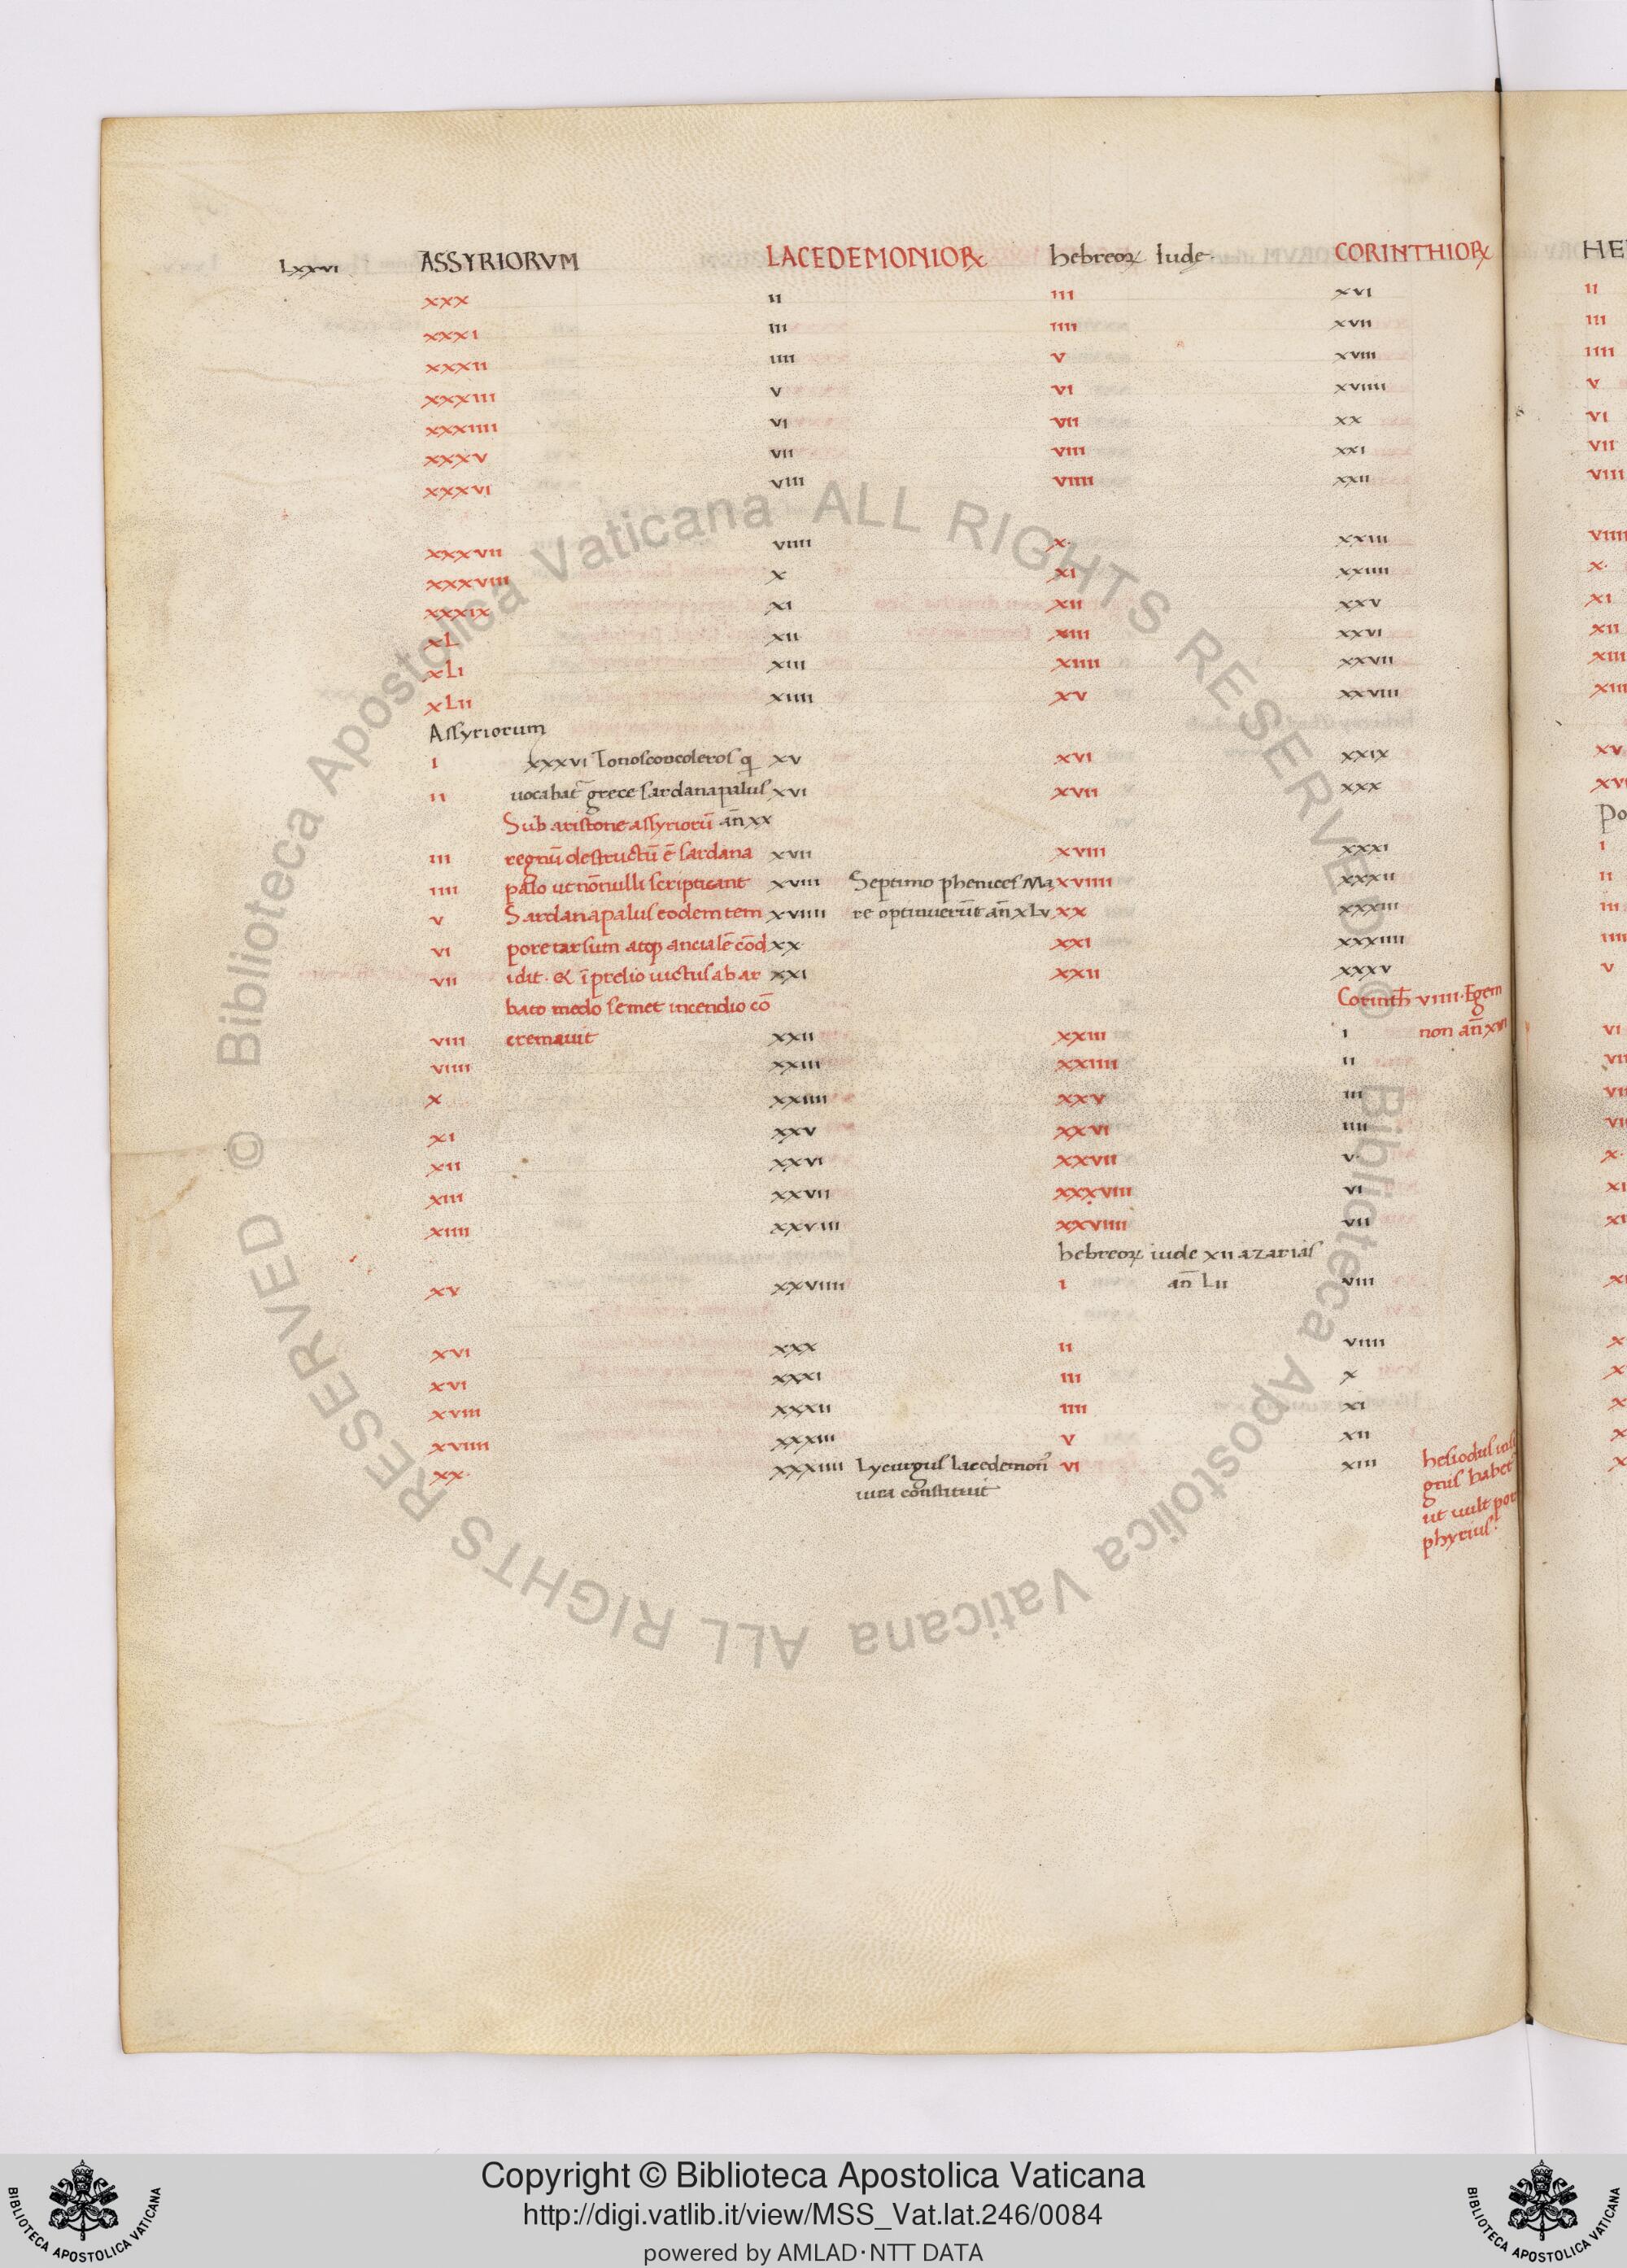 Lxxvi ASSYRIORVM LACEDEMONIORꝜ hebreoꝝ Iude· CORINTHIORꝜ HE
xxx ii iii xvi ii
xxxi iii iiii xvii iii
xxxii iiii v xviii iiii
xxxiii v vi xviiii v
xxxiiii vi vii xx vi
xxxv vii viii xxi vii
xxxvi viii viiii xxii viii
xxxvii viiii x· xxiii viiii
xxxviii x xi xxiiii x·
xxxix xi xii xxv xi
xL xii xiii xxvi xii
xLi xiii xiiii xxvii xiii
xLii xiiii xv xxviii xiii
Assyriorum
i xxxvi Tonosconcoleros q xv xvi xxix xv
ii uocabat̄ grece sardanapalus xvi xvii xxx xvi
Sub aristone assyriorū an̄ xx Po
iii regnū destructū ē sardana xvii xviii xxxi i
iiii palo ut nonnulli scripticant xviii Septimo phenices Ma xviiii xxxii ii
v Sardanapalus eodem tem xviiii re optinuerūt an̄ xLv xx xxxiii iii
vi pore tarsum atq; ancialē cōd xx xxi xxxiiii iiii
vii idit· & ī prelio uictus ab ar xxi xxii xxxv v
bato medo semet incendio cō Corinth̄ viiii· Egem
viii cremauit xxii xxiii i non an̄ xvi vi
viiii xxiii xxiiii ii vii
x xxiiii xxv iii vii
xi xxv xxvi iiii vi
xii xxvi xxvii v· x·
xiii xxvii xxxviii vi xi
xiiii xxviii xxviiii vii xi
hebreoꝝ iude xii azarias
xv xxviiii i an̄ Lii viii x
xvi xxx ii viiii x
xvi xxxi iii x x
xviii xxxii iiii xi x
xviiii xxxiii v xii x
xx· xxxiiii Lycurgus Lacedemon̄ vi xiii hesiodus insi x
iura constituit gnis habet
ut uult por
phyrius·
© Biblioteca Apostolica Vaticana ALL RIGHTS RESERVED © Biblioteca Apostolica Vaticana ALL RIGHTS RESERVED
Copyright © Biblioteca Apostolica Vaticana
http://digi.vatlib.it/view/MSS_Vat.lat.246/0084
powered by AMLAD·NTT DATA
BIBLIOTECA APOSTOLICA VATICANA
BIBLIOTECA APOSTOLICA VATICANA